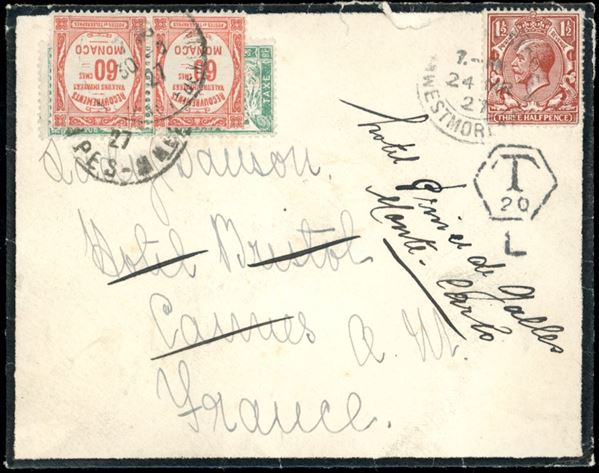 1½ 1½
THREE HALFPENCE
24
27
WESTMOR
T
20
L
MONACO
60
CMES
RECOUVREMENTS
VALEURS IMPAYÉES
MONACO
60
CMES
RECOUVREMENTS
VALEURS IMPAYÉES
TAXE
27
PES-MA
Lady
Hotel Bristol
Cannes A. M.
France.
hotel Prince de Galles
Monte-Carlo